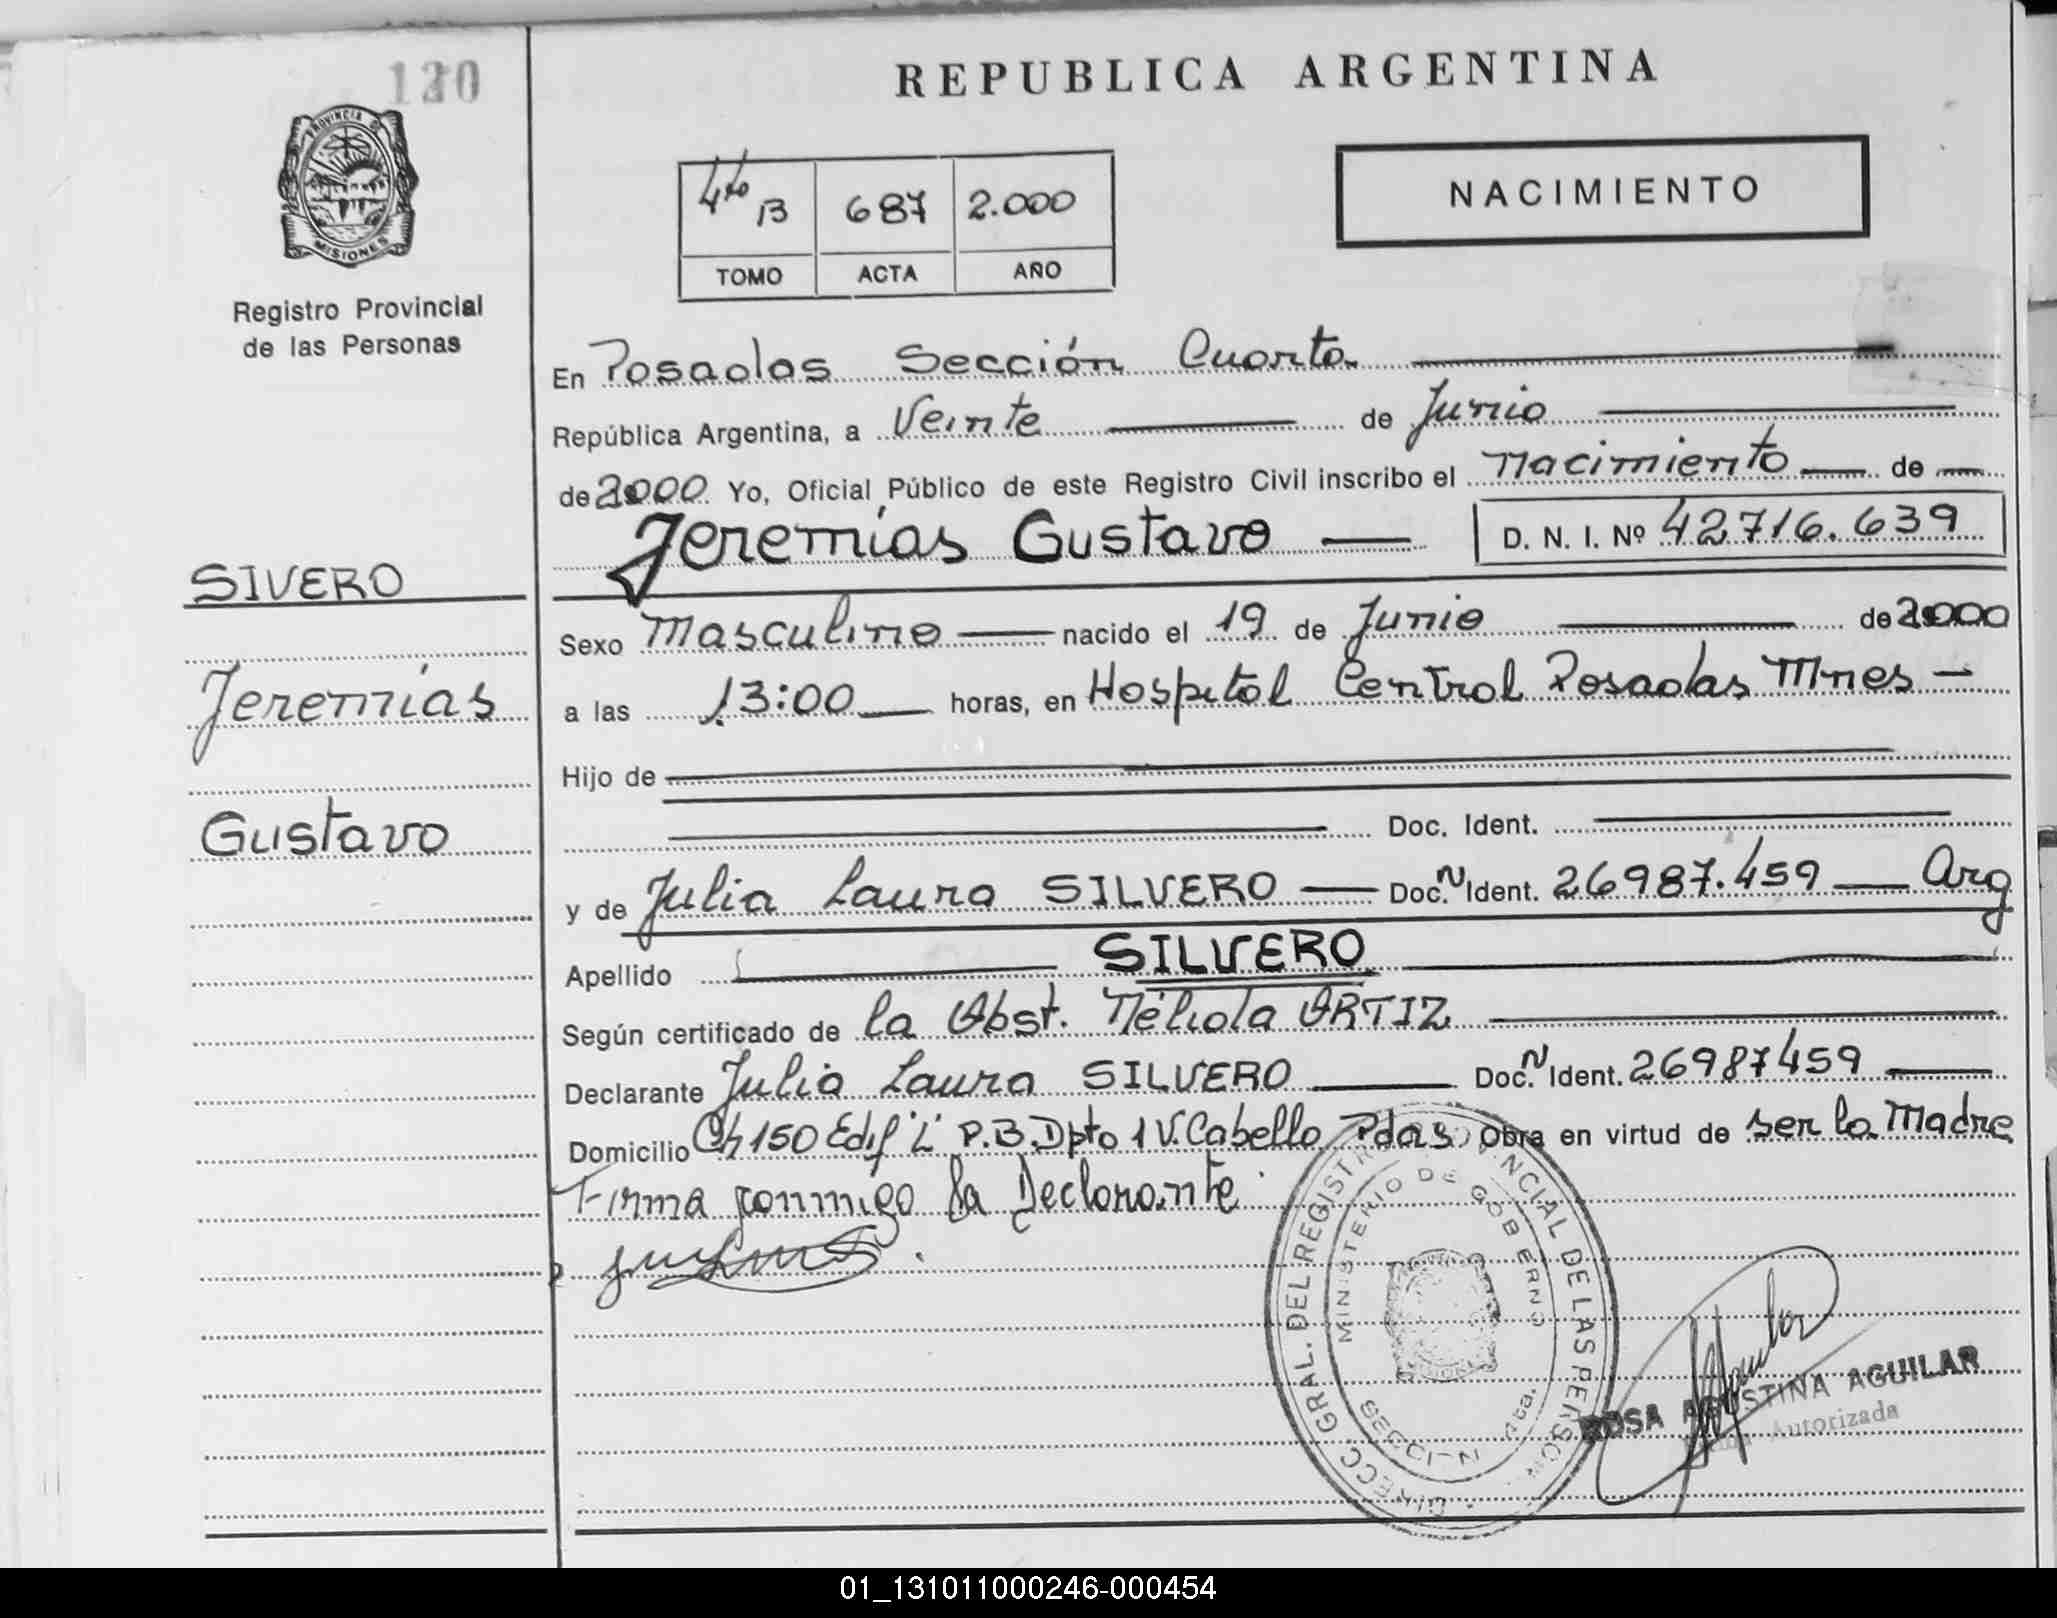 120
REPUBLICA ARGENTINA
PROVINCIA DE
MISIONES
Registro Provincial
de las Personas
NACIMIENTO
4to B 687 2.000
TOMO ACTA AÑO
En Posadas Sección Cuarta
República Argentina, a Veinte de Junio
de 2000 Yo, Oficial Público de este Registro Civil inscribo el nacimiento de
Jeremías Gustavo D. N. I. Nº 42716.639
SIVERO
Jeremías
Gustavo
Sexo Masculino nacido el 19 de Junio de 2000
a las 13:00 horas, en Hospital Central Posadas Mnes
Hijo de
Doc. Ident.
y de Julia Laura SILVERO Doc. N Ident. 26987.459 Arg
Apellido SILVERO
Según certificado de la Obst. Nélida ORTIZ
Declarante Julia Laura SILVERO Doc. N Ident. 26987459
Domicilio Ch 150 Edif "L" P.B. Dpto 1 V. Cabello Pdas Obra en virtud de ser la Madre
Firma conmigo la Declarante
DIRECC GRAL. DEL REGISTRO PROVINCIAL DE LAS PERSONAS
MINISTERIO DE GOBIERNO
SECCION 4ta.
ROSA AGUSTINA AGUILAR
Firma Autorizada
01_131011000246-000454